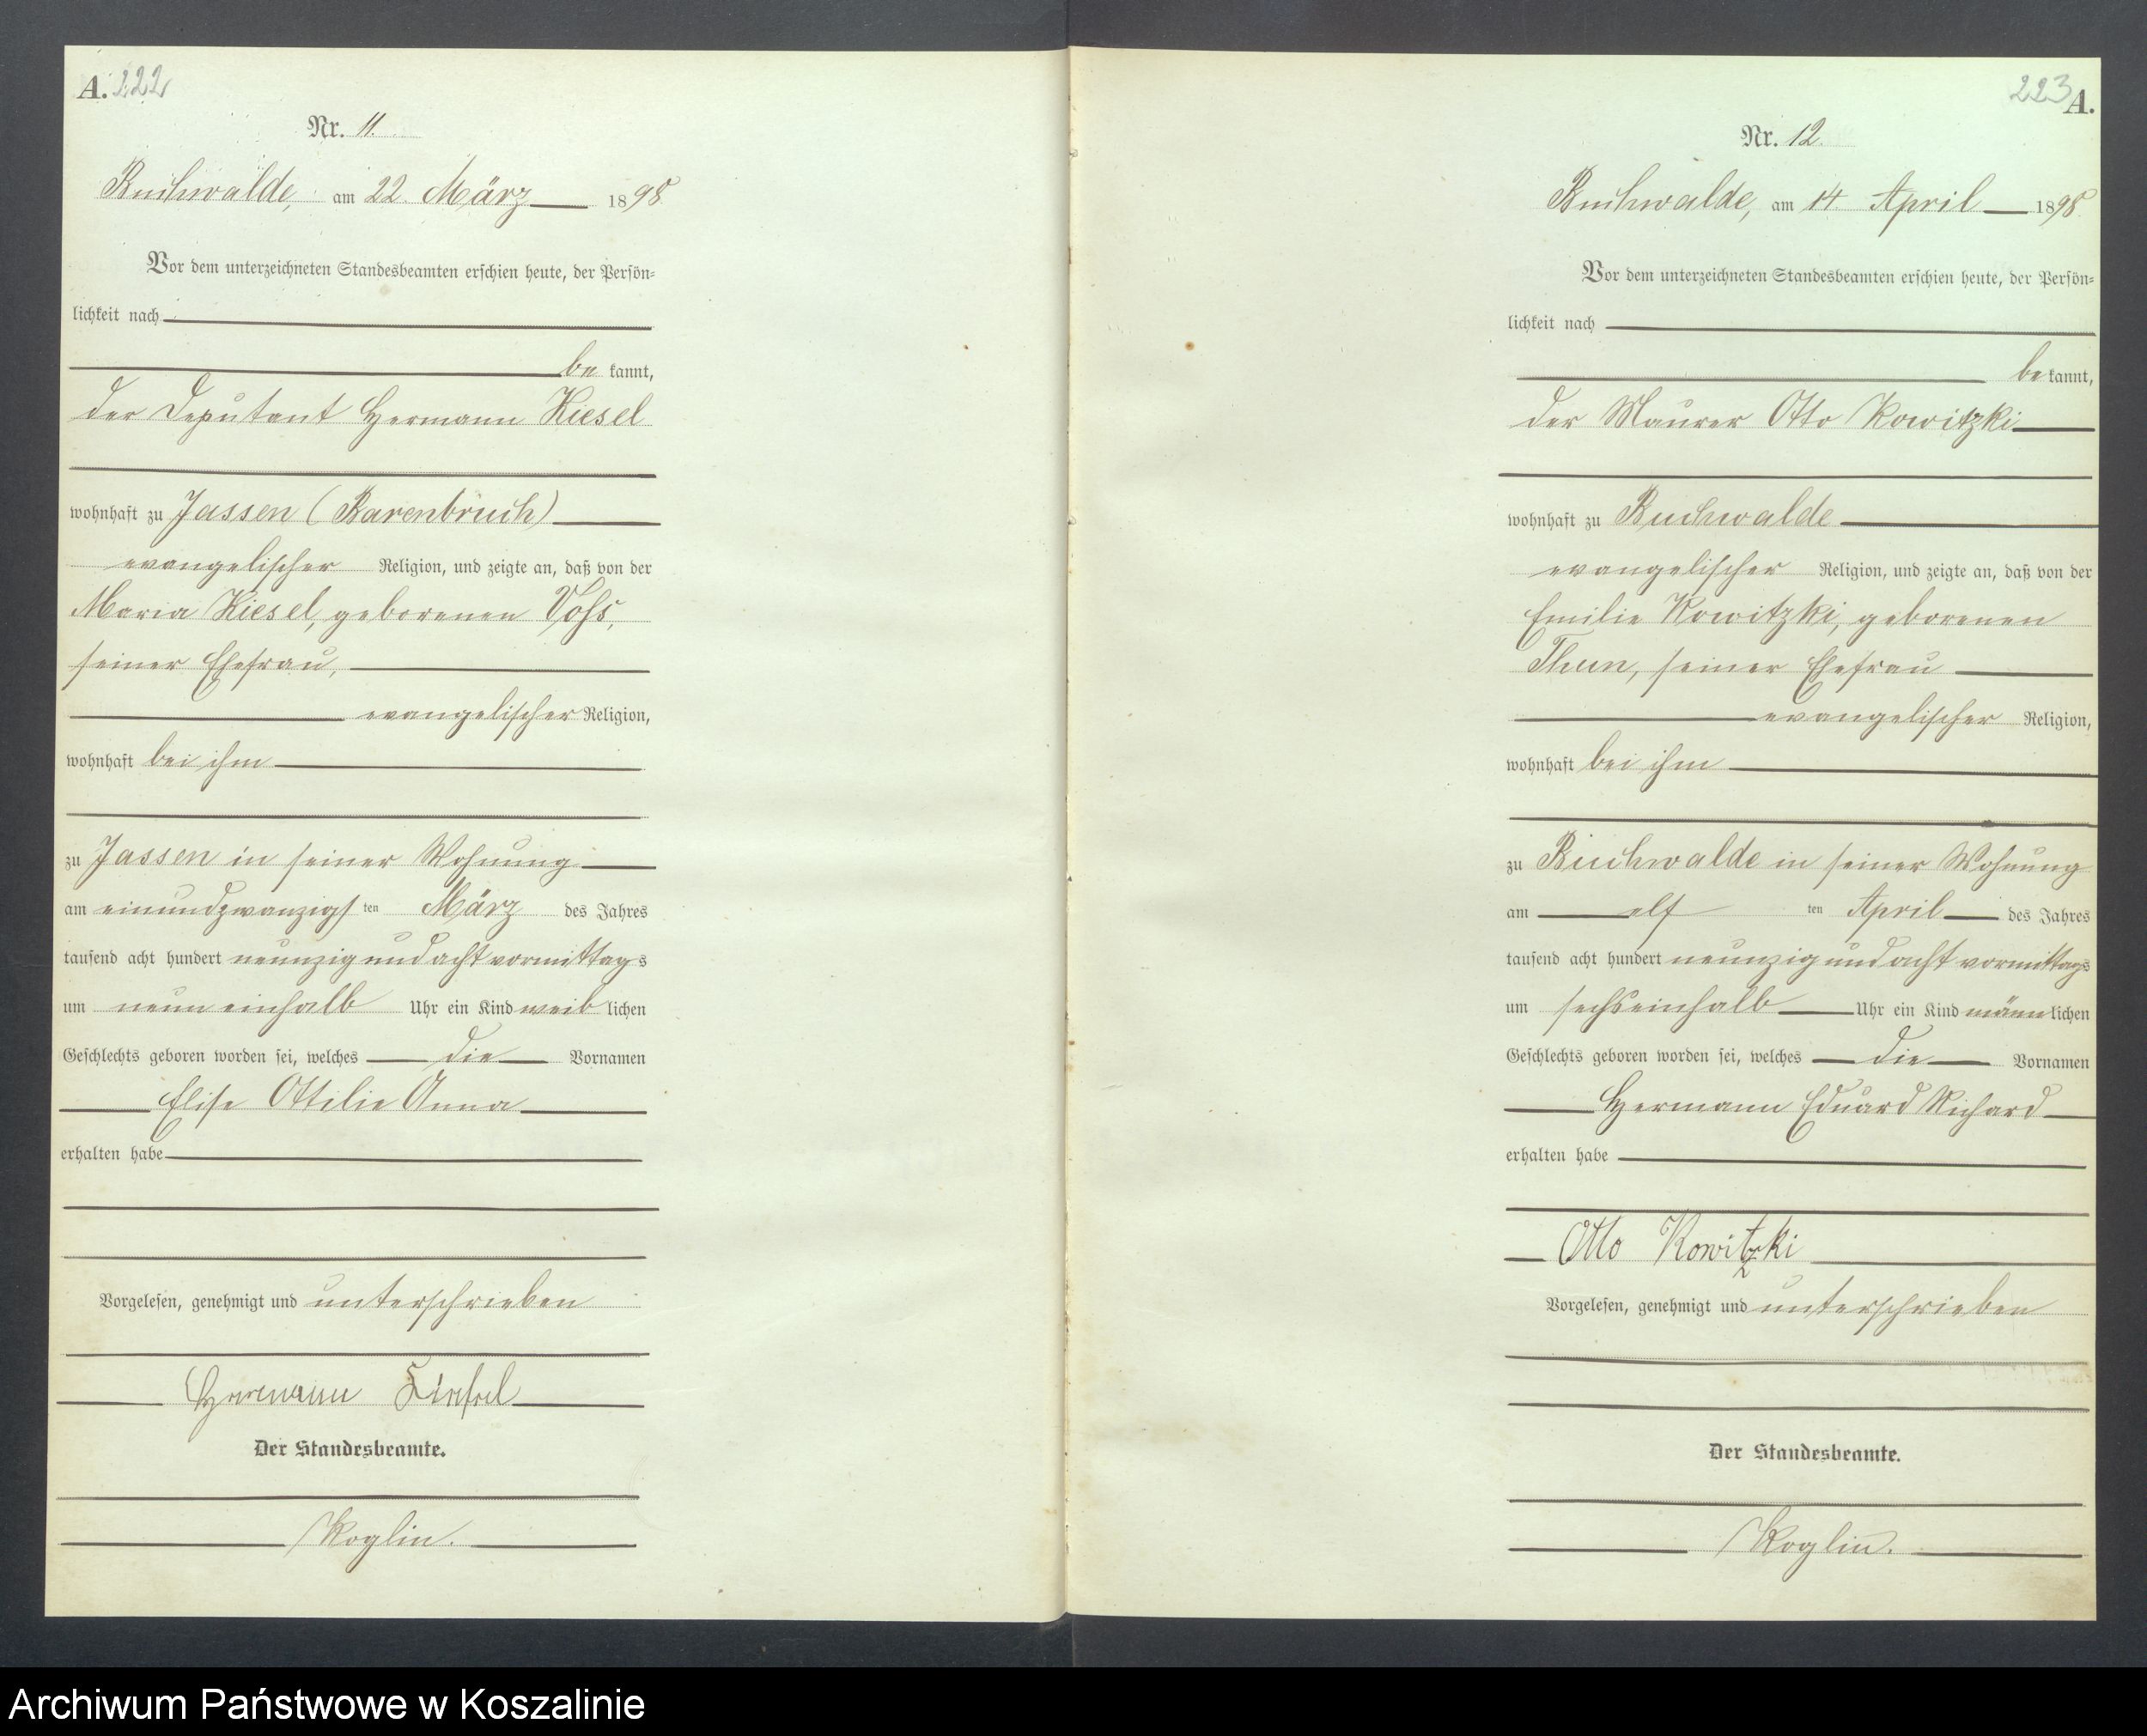 A. 222
Nr. 11.
Buchwalde, am 22. März 1898
Vor dem unterzeichneten Standesbeamten erschien heute, der Persön=
lichkeit nach
be kannt,
der Deputant Hermann Kiesel
wohnhaft zu Jassen (Barenbruch)
evangelischer Religion, und zeigte an, daß von der
Maria Kiesel, geborenen Voss,
seiner Ehefrau,
evangelischer Religion,
wohnhaft bei ihm
zu Jassen in seiner Wohnung
am einundzwanzigs ten März des Jahres
tausend acht hundert neunzig und acht vormittags
um neun einhalb Uhr ein Kind weib lichen
Geschlechts geboren worden sei, welches die Vornamen
Elise Ottilie Anna
erhalten habe
Vorgelesen, genehmigt und unterschrieben
Hermann Kiesel
Der Standesbeamte.
Koglin.
223 A.
Nr. 12.
Buchwalde, am 14. April 1898
Vor dem unterzeichneten Standesbeamten erschien heute, der Persön=
lichkeit nach
be kannt,
der Maurer Otto Kowitzki
wohnhaft zu Buchwalde
evangelischer Religion, und zeigte an, daß von der
Emilie Kowitzki, geborenen
Thun, seiner Ehefrau
evangelischer Religion,
wohnhaft bei ihm
zu Buchwalde in seiner Wohnung
am elf ten April des Jahres
tausend acht hundert neunzig und acht vormittags
um sechseinhalb Uhr ein Kind männ lichen
Geschlechts geboren worden sei, welches die Vornamen
Hermann Eduard Richard
erhalten habe
Otto Kowitzki
Vorgelesen, genehmigt und unterschrieben
Der Standesbeamte.
Koglin.
Archiwum Państwowe w Koszalinie